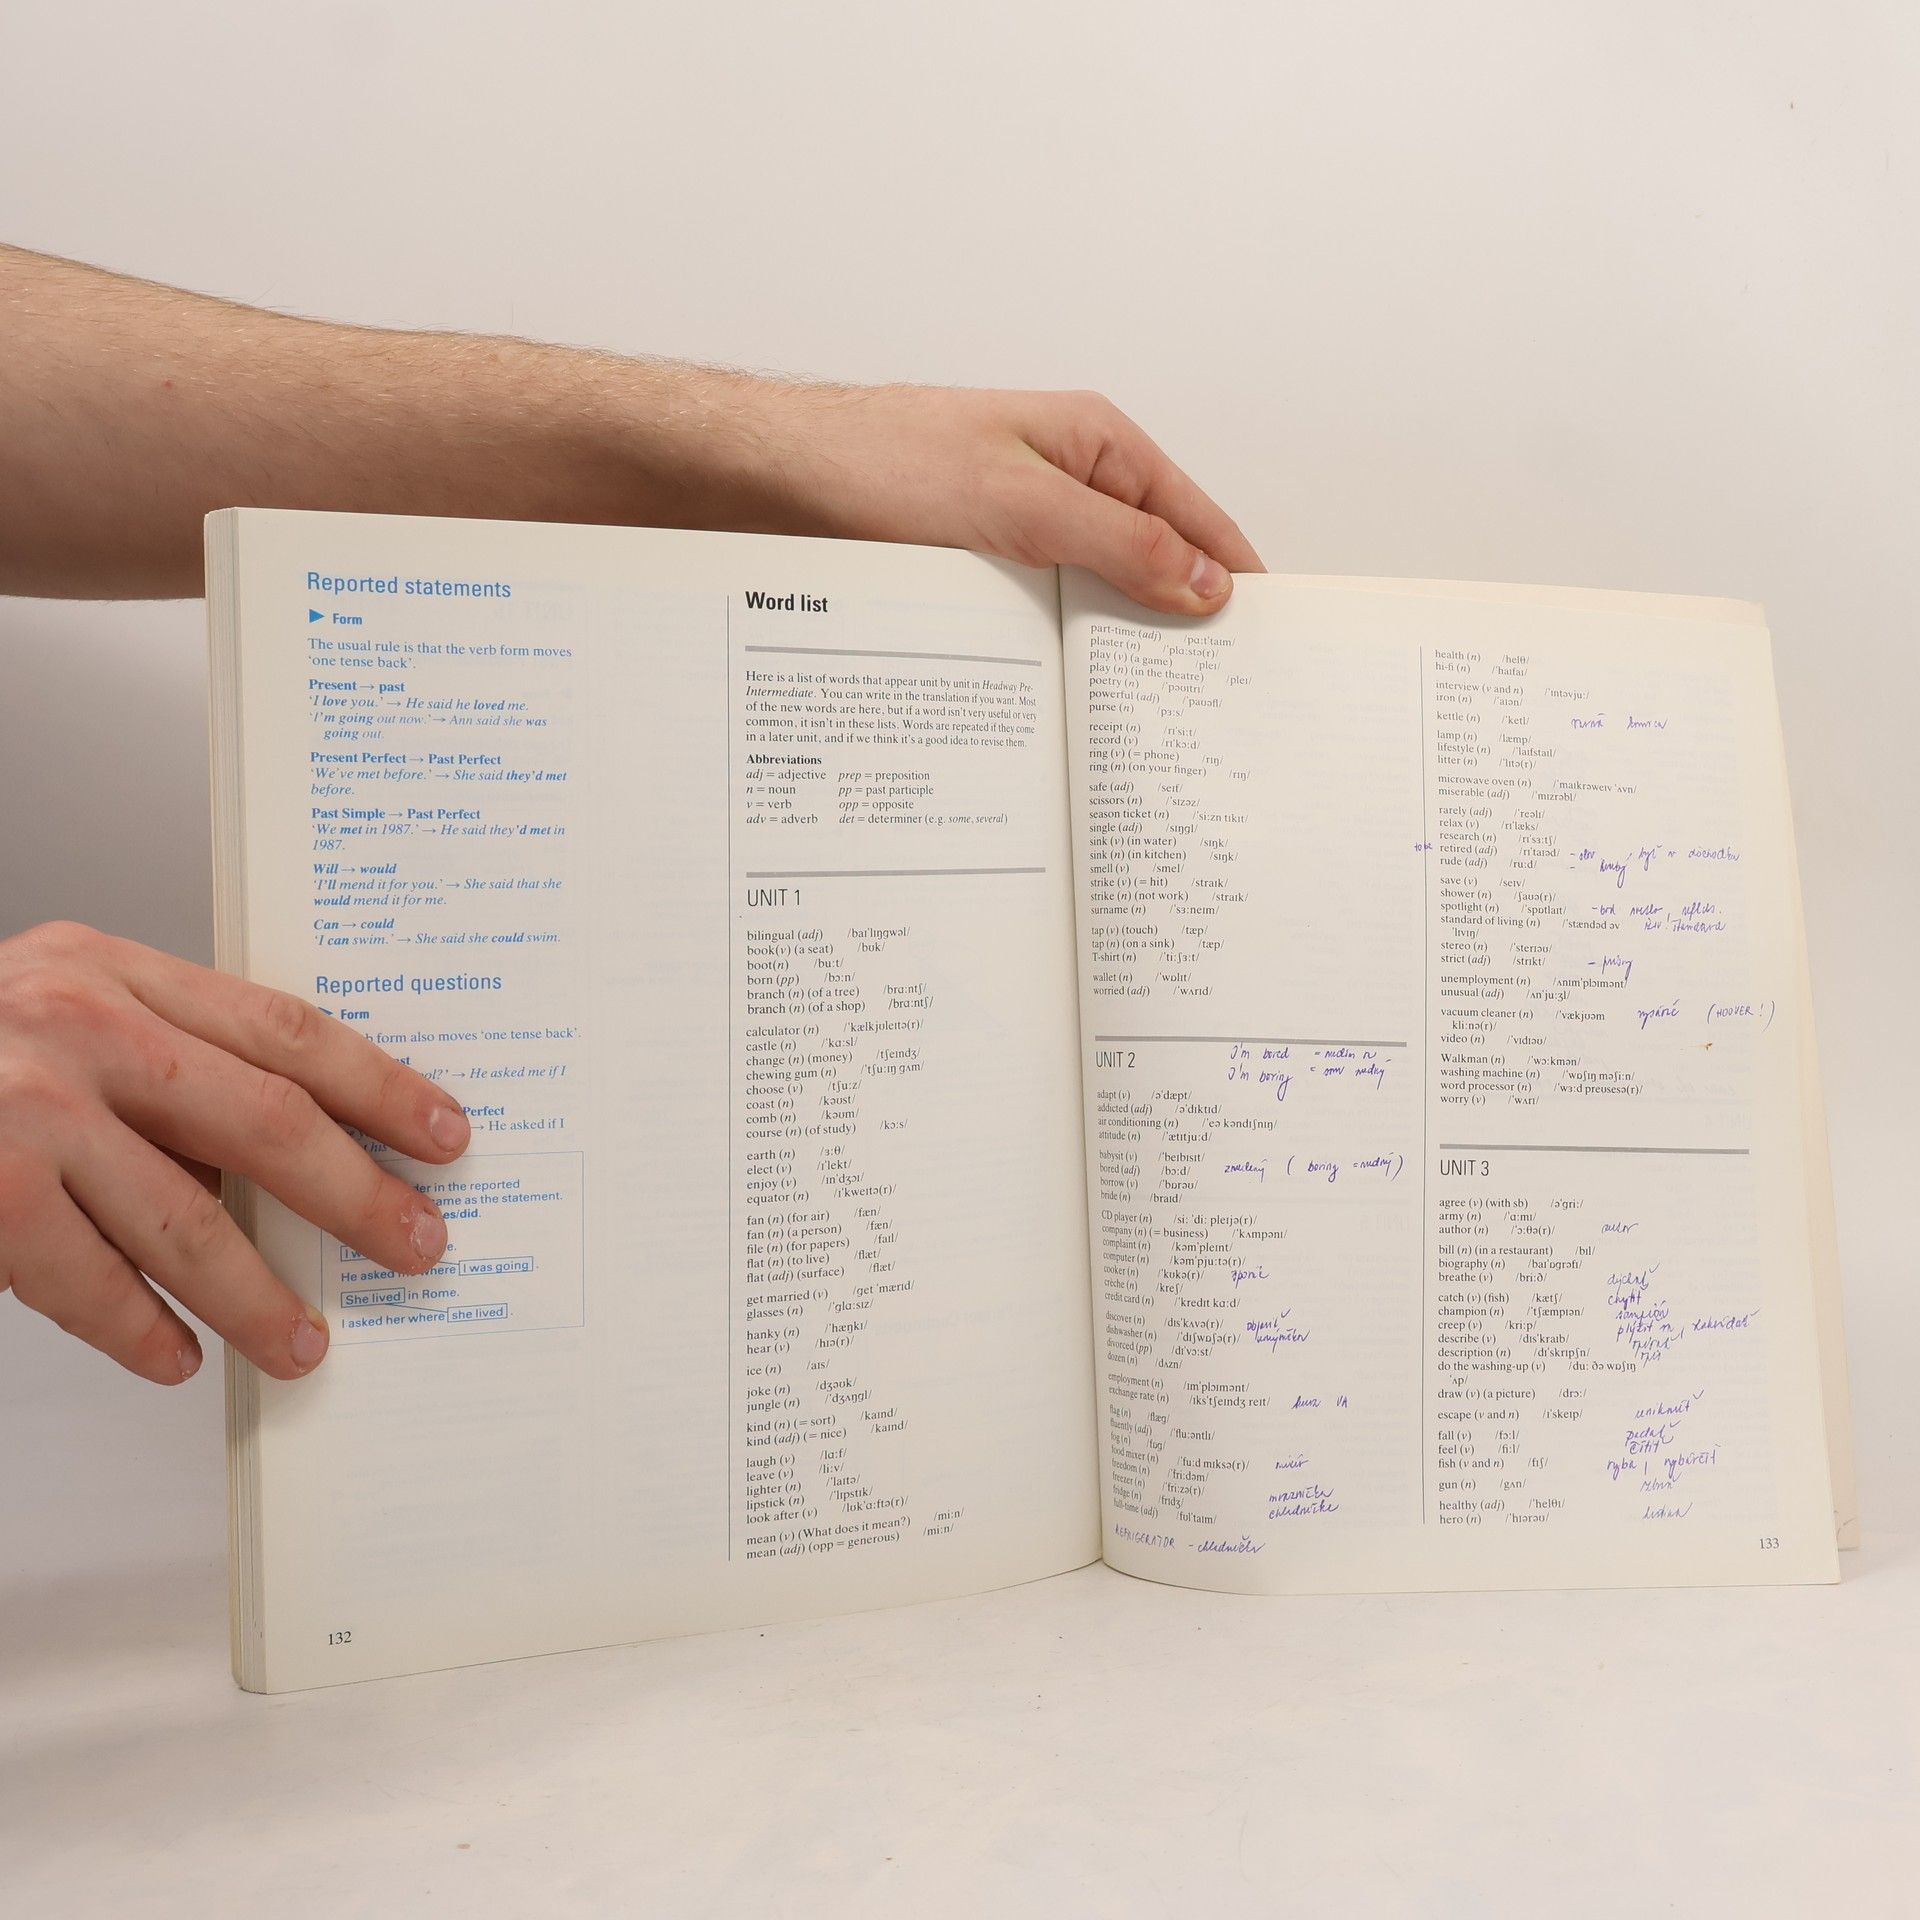 Reported statements
Form
The usual rule is that the verb form moves
‘one tense back’.
Present → past
‘I love you.’ → He said he loved me.
‘I’m going out now.’ → Ann said she was
going out.
Present Perfect → Past Perfect
‘We’ve met before.’ → She said they’d met
before.
Past Simple → Past Perfect
‘We met in 1987.’ → He said they’d met in
1987.
Will → would
‘I’ll mend it for you.’ → She said that she
would mend it for me.
Can → could
‘I can swim.’ → She said she could swim.
Reported questions
Form
form also moves ‘one tense back’.
→ He asked me if I
Perfect
→ He asked if I
in the reported
same as the statement.
es/did.
He asked where I was going.
She lived in Rome.
I asked her where she lived.
132
Word list
Here is a list of words that appear unit by unit in Headway Pre-
Intermediate. You can write in the translation if you want. Most
of the new words are here, but if a word isn’t very useful or very
common, it isn’t in these lists. Words are repeated if they come
in a later unit, and if we think it’s a good idea to revise them.
Abbreviations
adj = adjective prep = preposition
n = noun pp = past participle
v = verb opp = opposite
adv = adverb det = determiner (e.g. some, several)
UNIT 1
bilingual (adj) /baɪˈlɪŋgwəl/
book(v) (a seat) /bʊk/
boot(n) /buːt/
born (pp) /bɔːn/
branch (n) (of a tree) /brɑːntʃ/
branch (n) (of a shop) /brɑːntʃ/
calculator (n) /ˈkælkjʊleɪtə(r)/
castle (n) /ˈkɑːsl/
change (n) (money) /tʃeɪndʒ/
chewing gum (n) /ˈtʃuːɪŋ gʌm/
choose (v) /tʃuːz/
coast (n) /kəʊst/
comb (n) /kəʊm/
course (n) (of study) /kɔːs/
earth (n) /ɜːθ/
elect (v) /ɪˈlekt/
enjoy (v) /ɪnˈdʒɔɪ/
equator (n) /ɪˈkweɪtə(r)/
fan (n) (for air) /fæn/
fan (n) (a person) /fæn/
file (n) (for papers) /faɪl/
flat (n) (to live) /flæt/
flat (adj) (surface) /flæt/
get married (v) /get ˈmærɪd/
glasses (n) /ˈglɑːsɪz/
hanky (n) /ˈhæŋkɪ/
hear (v) /hɪə(r)/
ice (n) /aɪs/
joke (n) /dʒəʊk/
jungle (n) /ˈdʒʌŋgl/
kind (n) (= sort) /kaɪnd/
kind (adj) (= nice) /kaɪnd/
laugh (v) /lɑːf/
leave (v) /liːv/
lighter (n) /ˈlaɪtə/
lipstick (n) /ˈlɪpstɪk/
look after (v) /lʊkˈɑːftə(r)/
mean (v) (What does it mean?) /miːn/
mean (adj) (opp = generous) /miːn/
part-time (adj) /pɑːtˈtaɪm/
plaster (n) /ˈplɑːstə(r)/
play (v) (a game) /pleɪ/
play (n) (in the theatre) /pleɪ/
poetry (n) /ˈpəʊɪtrɪ/
powerful (adj) /ˈpaʊəfl/
purse (n) /pɜːs/
receipt (n) /rɪˈsiːt/
record (v) /rɪˈkɔːd/
ring (v) (= phone) /rɪŋ/
ring (n) (on your finger) /rɪŋ/
safe (adj) /seɪf/
scissors (n) /ˈsɪzəz/
season ticket (n) /ˈsiːzn tɪkɪt/
single (adj) /sɪŋgl/
sink (v) (in water) /sɪŋk/
sink (n) (in kitchen) /sɪŋk/
smell (v) /smel/
strike (v) (= hit) /straɪk/
strike (n) (not work) /straɪk/
surname (n) /ˈsɜːneɪm/
tap (v) (touch) /tæp/
tap (n) (on a sink) /tæp/
T-shirt (n) /ˈtiːʃɜːt/
wallet (n) /ˈwɒlɪt/
worried (adj) /ˈwʌrɪd/
UNIT 2
I'm bored
I'm boring
adapt (v) /əˈdæpt/
addicted (adj) /əˈdɪktɪd/
air conditioning (n) /ˈeə kəndɪʃnɪŋ/
attitude (n) /ˈætɪtjuːd/
babysit (v) /ˈbeɪbɪsɪt/
bored (adj) /bɔːd/ znuděný ( boring = nudný )
borrow (v) /ˈbɒrəʊ/
bride (n) /braɪd/
CD player (n) /siː ˈdiː pleɪjə(r)/
company (n) (= business) /ˈkʌmpənɪ/
complaint (n) /kəmˈpleɪnt/
computer (n) /kəmˈpjuːtə(r)/
cooker (n) /ˈkʊkə(r)/
crèche (n) /kreʃ/
credit card (n) /ˈkredɪt kɑːd/
discover (n) /dɪsˈkʌvə(r)/
dishwasher (n) /ˈdɪʃwɒʃə(r)/
divorced (pp) /dɪˈvɔːst/
dozen (n) /dʌzn/
employment (n) /ɪmˈplɔɪmənt/
exchange rate (n) /ɪksˈtʃeɪndʒ reɪt/
flag (n) /flæg/
fluently (adj) /ˈfluːəntlɪ/
fog (n) /fɒg/
food mixer (n) /ˈfuːd mɪksə(r)/
freedom (n) /ˈfriːdəm/
freezer (n) /ˈfriːzə(r)/ mraznička
fridge (n) /frɪdʒ/ chladnička
full-time (adj) /fʊlˈtaɪm/
REFRIGERATOR - chladnička
health (n) /helθ/
hi-fi (n) /ˈhaɪfaɪ/
interview (v and n) /ˈɪntəvjuː/
iron (n) /ˈaɪən/
kettle (n) /ˈketl/
lamp (n) /læmp/
lifestyle (n) /ˈlaɪfstaɪl/
litter (n) /ˈlɪtə(r)/
microwave oven (n) /ˈmaɪkrəweɪv ˈʌvn/
miserable (adj) /ˈmɪzrəbl/
rarely (adj) /ˈreəlɪ/
relax (v) /rɪˈlæks/
research (n) /rɪˈsɜːtʃ/
to be retired (adj) /rɪˈtaɪəd/
rude (adj) /ruːd/
save (v) /seɪv/
shower (n) /ʃaʊə(r)/
spotlight (n) /ˈspɒtlaɪt/
standard of living (n) /ˈstændəd əv
ˈlɪvɪŋ/
stereo (n) /ˈsterɪəʊ/
strict (adj) /strɪkt/
unemployment (n) /ʌnɪmˈplɔɪmənt/
unusual (adj) /ʌnˈjuːʒl/
vacuum cleaner (n) /ˈvækjʊəm (HOOVER!)
kliːnə(r)/
video (n) /ˈvɪdɪəʊ/
Walkman (n) /ˈwɔːkmən/
washing machine (n) /ˈwɒʃɪŋ məʃiːn/
word processor (n) /ˈwɜːd prəʊsesə(r)/
worry (v) /ˈwʌrɪ/
UNIT 3
agree (v) (with sb) /əˈgriː/
army (n) /ˈɑːmɪ/
author (n) /ˈɔːθə(r)/
bill (n) (in a restaurant) /bɪl/
biography (n) /baɪˈɒgrəfɪ/
breathe (v) /briːð/
catch (v) (fish) /kætʃ/
champion (n) /ˈtʃæmpɪən/
creep (v) /kriːp/
describe (v) /dɪsˈkraɪb/
description (n) /dɪˈskrɪpʃn/
do the washing-up (v) /duː ðə wɒʃɪŋ
ˈʌp/
draw (v) (a picture) /drɔː/
escape (v and n) /ɪˈskeɪp/
fall (v) /fɔːl/
feel (v) /fiːl/
fish (v and n) /fɪʃ/
gun (n) /gʌn/
healthy (adj) /ˈhelθɪ/
hero (n) /ˈhɪərəʊ/
133